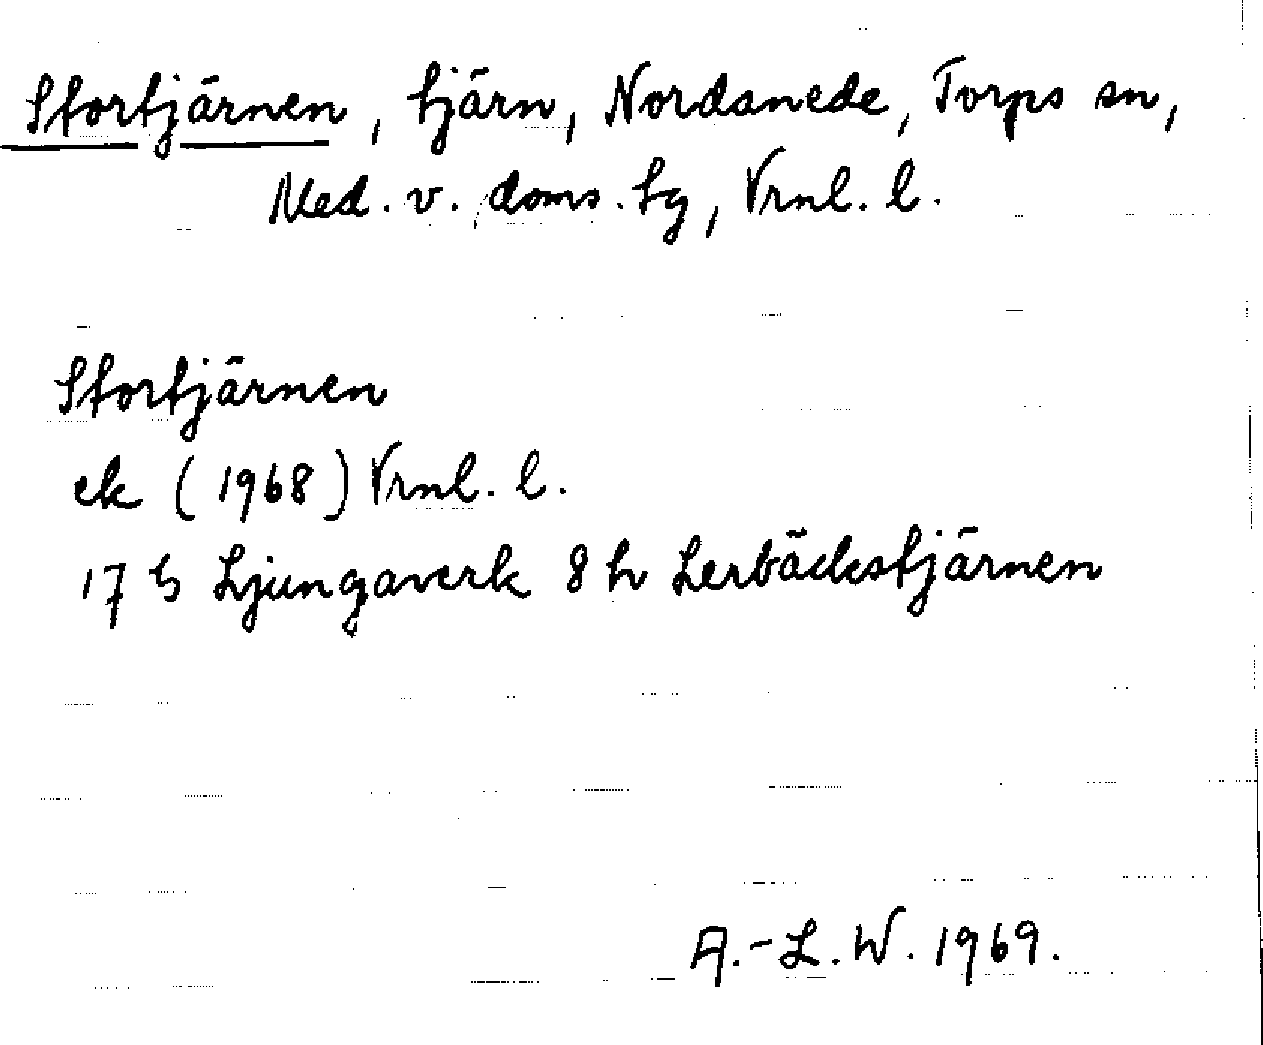 Stortjärnen, tjärn, Nordanede, Torps sn,
Med. v. doms. tg, Vrnl. l.
Stortjärnen
ek (1968) Vrnl. l.
17 G Ljungaverk 8 h Lerbäckstjärnen
A.-L. W. 1969.